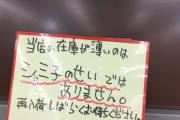 当店の在庫が薄いのは
ジュニ子のせいでは
ありません。
再入荷しばらくお待ちください